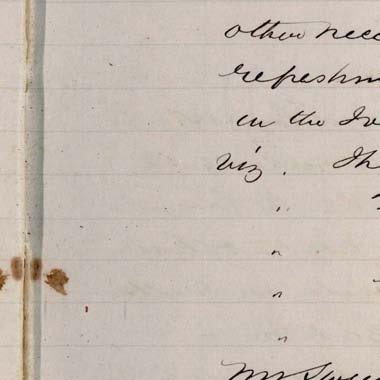 other nece
refreshm
in the Iv
viz. Th
"
"
"
"
Mr Swee